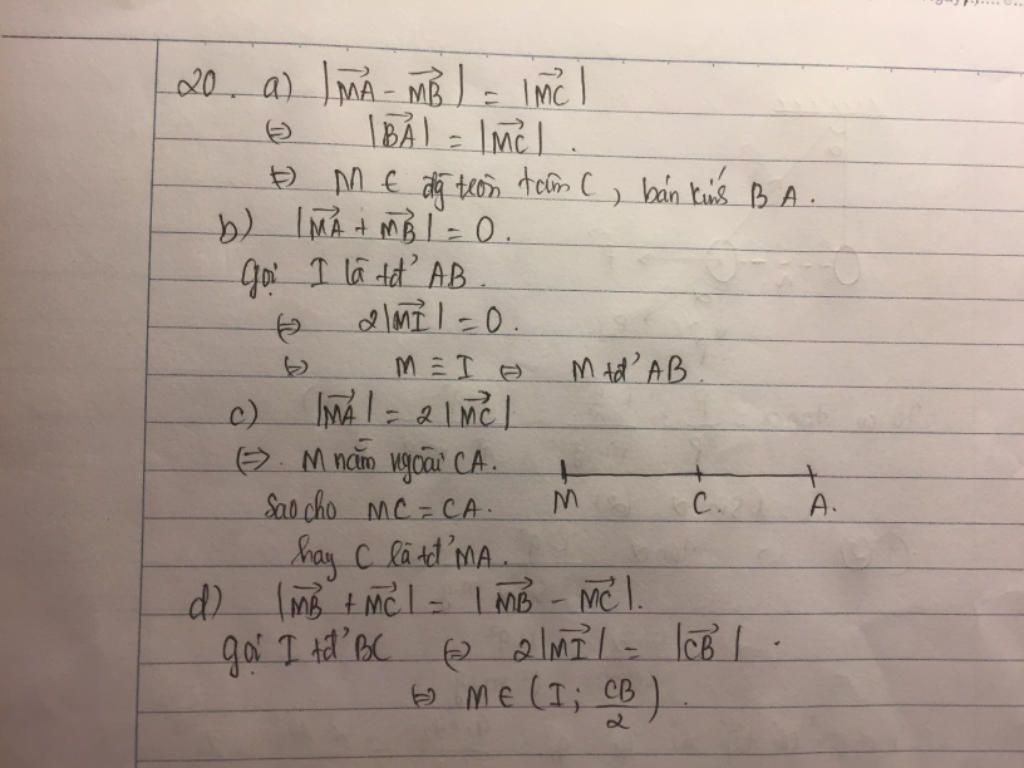 20. a) |MA→ - MB→| = |MC→|
⇔ |BA→| = |MC→|.
⇔ M ∈ đg tròn tâm C, bán kính BA.
b) |MA→ + MB→| = 0.
gọi I là tđ' AB.
⇔ 2|MI→| = 0.
⇔ M ≡ I ⇔ M tđ' AB.
c) |MA→| = 2|MC→|
⇔. M nằm ngoài CA.
Sao cho MC = CA. M C. A.
hay C là tđ' MA.
d) |MB→ + MC→| = |MB→ - MC→|.
gọi I tđ' BC ⇔ 2|MI→| = |CB→|.
⇔ M ∈ (I; CB/2).